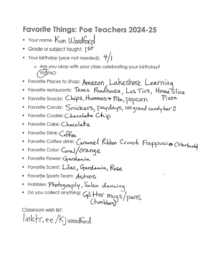 Favorite Things: Poe Teachers 2024-25
• Your name: Kim Woodford
• Grade or subject taught: 1st
• Your birthday (year not needed): 9/1
o Are you okay with your class celebrating your birthday?
YES/NO
• Favorite Places to Shop: Amazon, Lakeshore Learning
• Favorite restaurants: Texas Roadhouse, Los Tios, Home Slice
Pizza
• Favorite Snacks: Chips, Hummus & Pita, popcorn
• Favorite Candy: Snickers, paydays, 100 grand candy bar
• Favorite Cookie: Chocolate Chip
• Favorite Cake: Chocolate
• Favorite Drink: Coffee
• Favorite Coffee drink: Caramel Ribbon Crunch Frappuccino (Starbucks)
• Favorite Color: Coral/orange
• Favorite Flower: Gardenia
• Favorite Scent: Lilac, Gardenia, Rose
• Favorite Sports Team: Astros
• Hobbies: Photography, Salsa dancing
• Do you collect anything: Glitter mugs/pens
(tumblers)
Classroom wish list:
linktr.ee/Kjwoodford